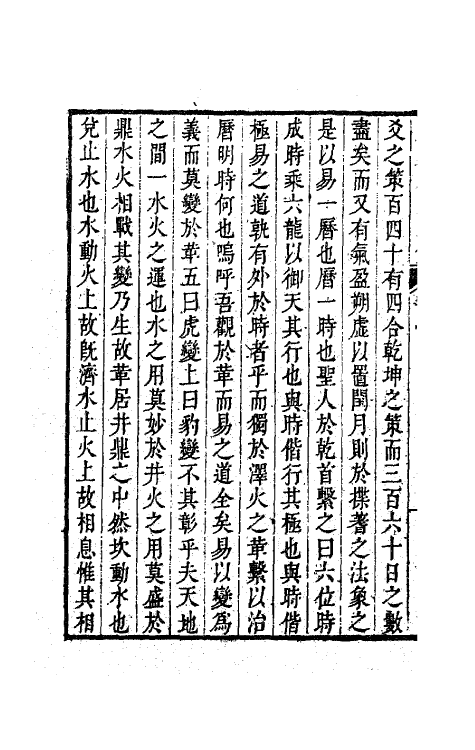 爻之策百四十有四合乾坤之策而三百六十日之數
盡矣而又有氣盈朔虛以置閏月則於揲蓍之法象之
是以易一曆也曆一時也聖人於乾首繫之曰六位時
成時乘六龍以御天其行也與時偕行其極也與時偕
極易之道孰有外於時者乎而獨於澤火之革繫以治
曆明時何也嗚呼吾觀於革而易之道全矣易以變爲
義而莫變於革五曰虎變上曰豹變不其彰乎夫天地
之間一水火之運也水之用莫妙於井火之用莫盛於
鼎水火相戰其變乃生故革居井鼎之中然坎動水也
兌止水也水動火上故旣濟水止火上故相息惟其相